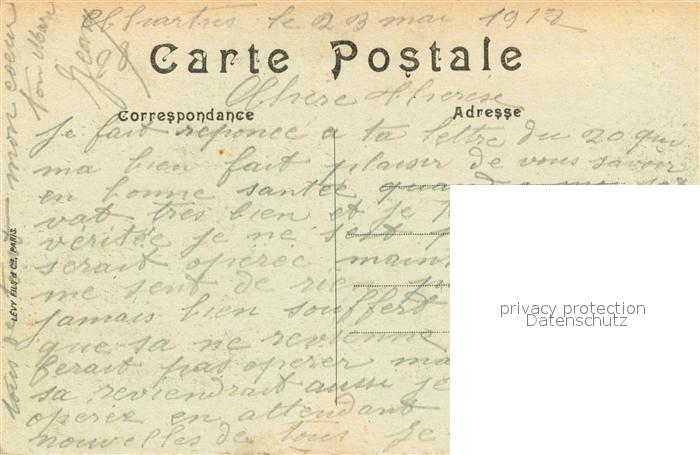 Chartres le 23 mai 1912
Carte Postale
Chère Therese
Correspondance
Adresse
je fait reponce a ta lettre du 20 qui
ma bien fait plaisir de vous savoir
en bonne santée
vat tres bien et je
veritée je ne
serait opérée main
me sent de rien
jamais bien souffert
que sa ne revienne
ferait pas operer ma
sa reviendrait aussi je
operée en attendant
nouvelles de tous je
tous de mon coeur
ton
Jean
LEVY FILS & Cie, PARIS
privacy protection
Datenschutz